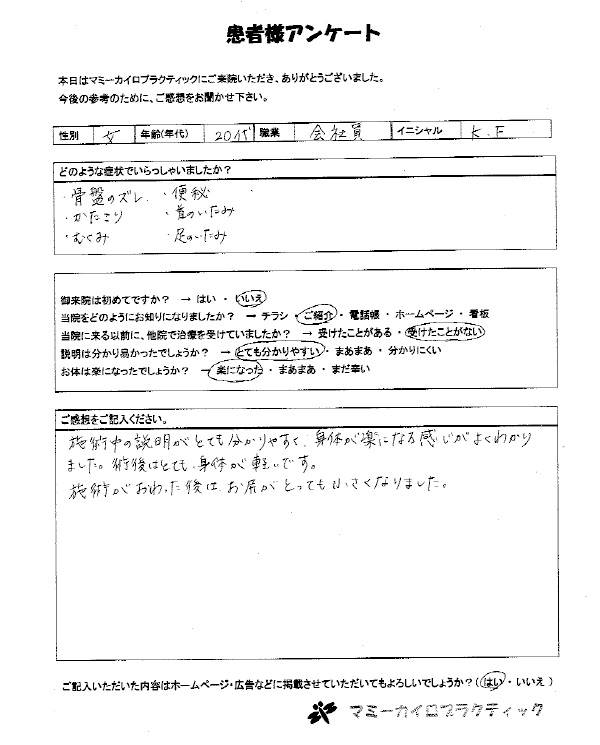 患者様アンケート
本日はマミーカイロプラクティックにご来院いただき、ありがとうございました。
今後の参考のために、ご感想をお聞かせ下さい。
性別 女 年齢(年代) 20代 職業 会社員 イニシャル K.F
どのような症状でいらっしゃいましたか?
・骨盤のズレ ・便秘 ・
・かたこり ・首のいたみ
・むくみ ・足のいたみ
御来院は初めてですか? → はい ・ いいえ
当院をどのようにお知りになりましたか? → チラシ ・ ご紹介 ・ 電話帳 ・ ホームページ ・ 看板
当院に来る以前に、他院で治療を受けていましたか? → 受けたことがある ・ 受けたことがない
説明は分かり易かったでしょうか? → とても分かりやすい ・ まあまあ ・ 分かりにくい
お体は楽になったでしょうか? → 楽になった ・ まあまあ ・ まだ辛い
ご感想をご記入ください。
施術中の説明がとても分かりやすく、身体が楽になる感じがよくわかり
ました。術後はとても身体が軽いです。
施術がおわった後は、お尻がとっても小さくなりました。
ご記入いただいた内容はホームページ・広告などに掲載させていただいてもよろしいでしょうか?(はい ・ いいえ)
マミーカイロプラクティック